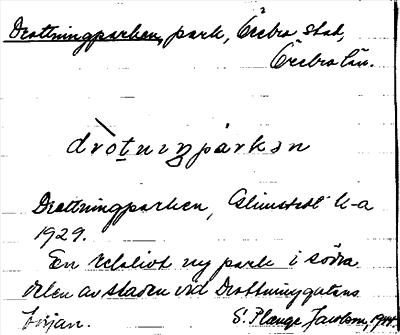 Drottningparken, park, Örebro stad,
Örebro län.
drot̲nıŋpàrkən
Drottningparken, Almstedt K-a
1929.
En relativt ny park i södra
delen av staden vid Drottninggatans
början. S. Plange Jacobson, 1944.